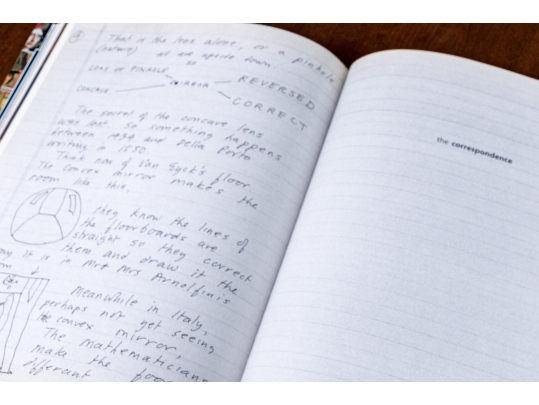 That is the lens alone, or a pinhole
(nature) all are upside down.
LENS or PINHOLE
MIRROR
REVERSED
CONCAVE
CORRECT
The secret of the concave lens
was lost. So something happens
between 1434 and Della Porta
writing in 1550.
That now of Van Eyck's floor.
The convex mirror makes the
room like this.
they know the lines of
the floorboards are
straight so they correct
them and draw it the
way it is in Mr + Mrs Arnolfinis
Meanwhile in Italy,
perhaps not yet seeing
the convex mirror,
The mathematicians
make the
different
the correspondence